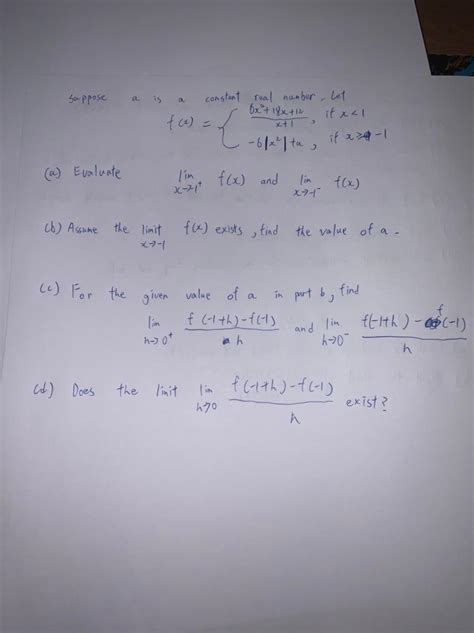 Suppose a is a constant real number. Let
f(x) = { 6x²+18x+12 / x+1 , if x < 1
-6|x²|+a , if x ≥ -1
(a) Evaluate lim x→-1⁺ f(x) and lim x→-1⁻ f(x)
(b) Assume the limit x→-1 f(x) exists, find the value of a.
(c) For the given value of a in part b, find
lim h→0⁺ f(-1+h)-f(-1) / h and lim h→0⁻ f(-1+h)-f(-1) / h
(d) Does the limit lim h→0 f(-1+h)-f(-1) / h exist?